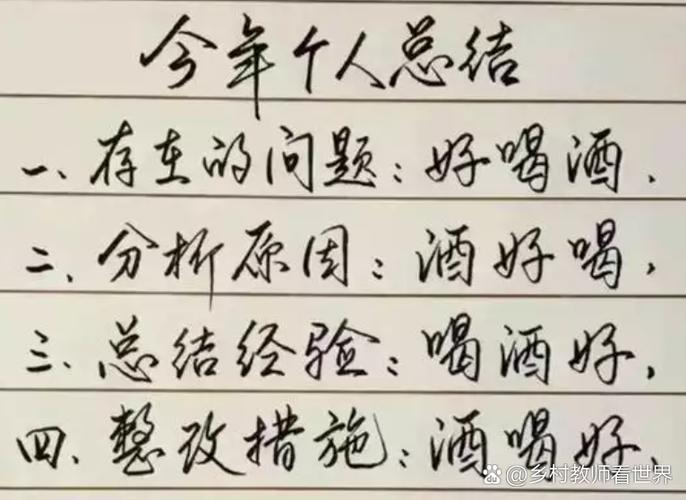 今年个人总结
一、存在的问题：好喝酒.
二、分析原因：酒好喝,
三、总结经验：喝酒好,
四、整改措施：酒喝好.
@乡村教师看世界